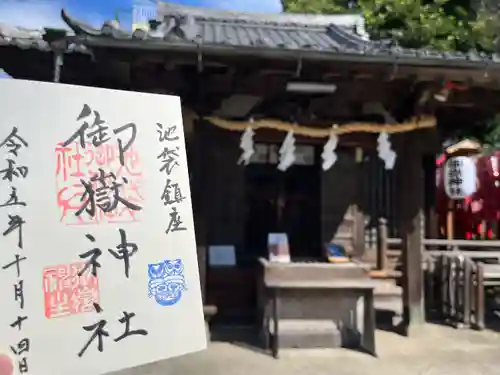 池袋鎮座
御嶽神社
令和五年十月十四日